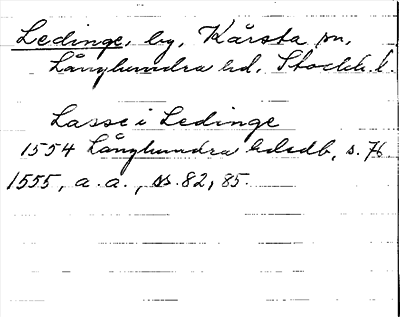 Ledinge, by, Kårsta sn,
Långhundra hd, Stockh. l.
Lasse i Ledinge
1554 Långhundra hdsdb, s. 76
1555, a. a., ss. 82, 85.